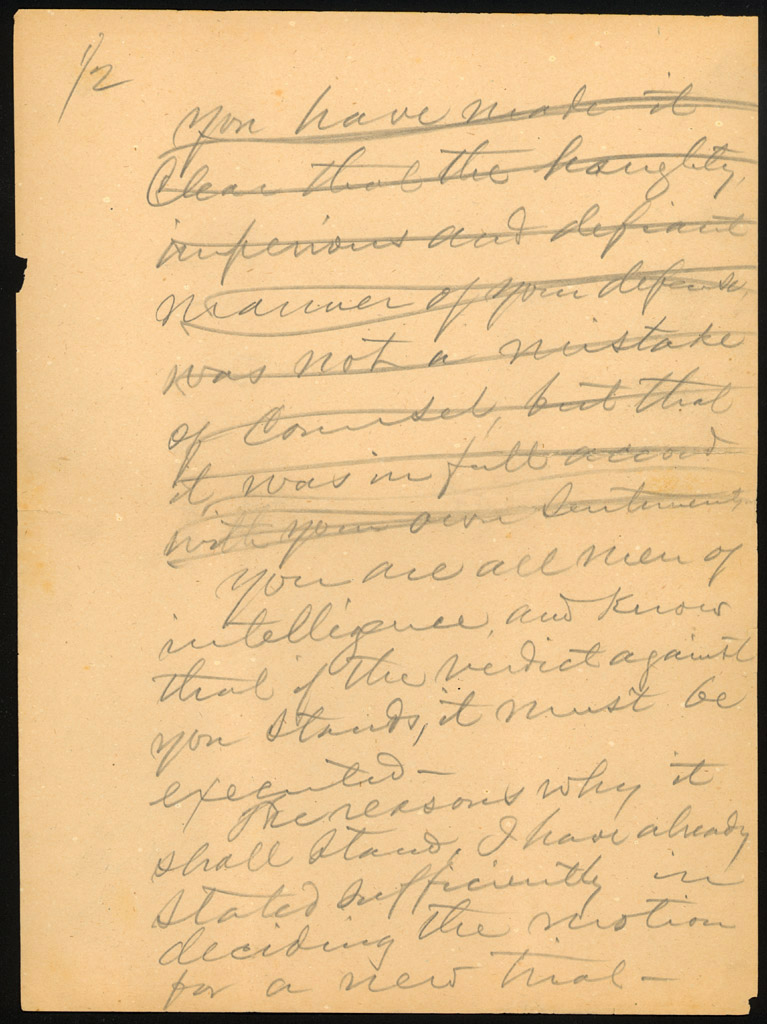 1/2
You have made it
clear that the haughty,
imperious and defiant
manner of your defense,
was not a mistake
of Counsel, but that
it, was in full accord
with your own sentiments
You are all men of
intelligence, and know
that if the verdict against
you stands, it must be
executed—
The reasons why it
shall stand, I have already
stated sufficiently in
deciding the motion
for a new trial—